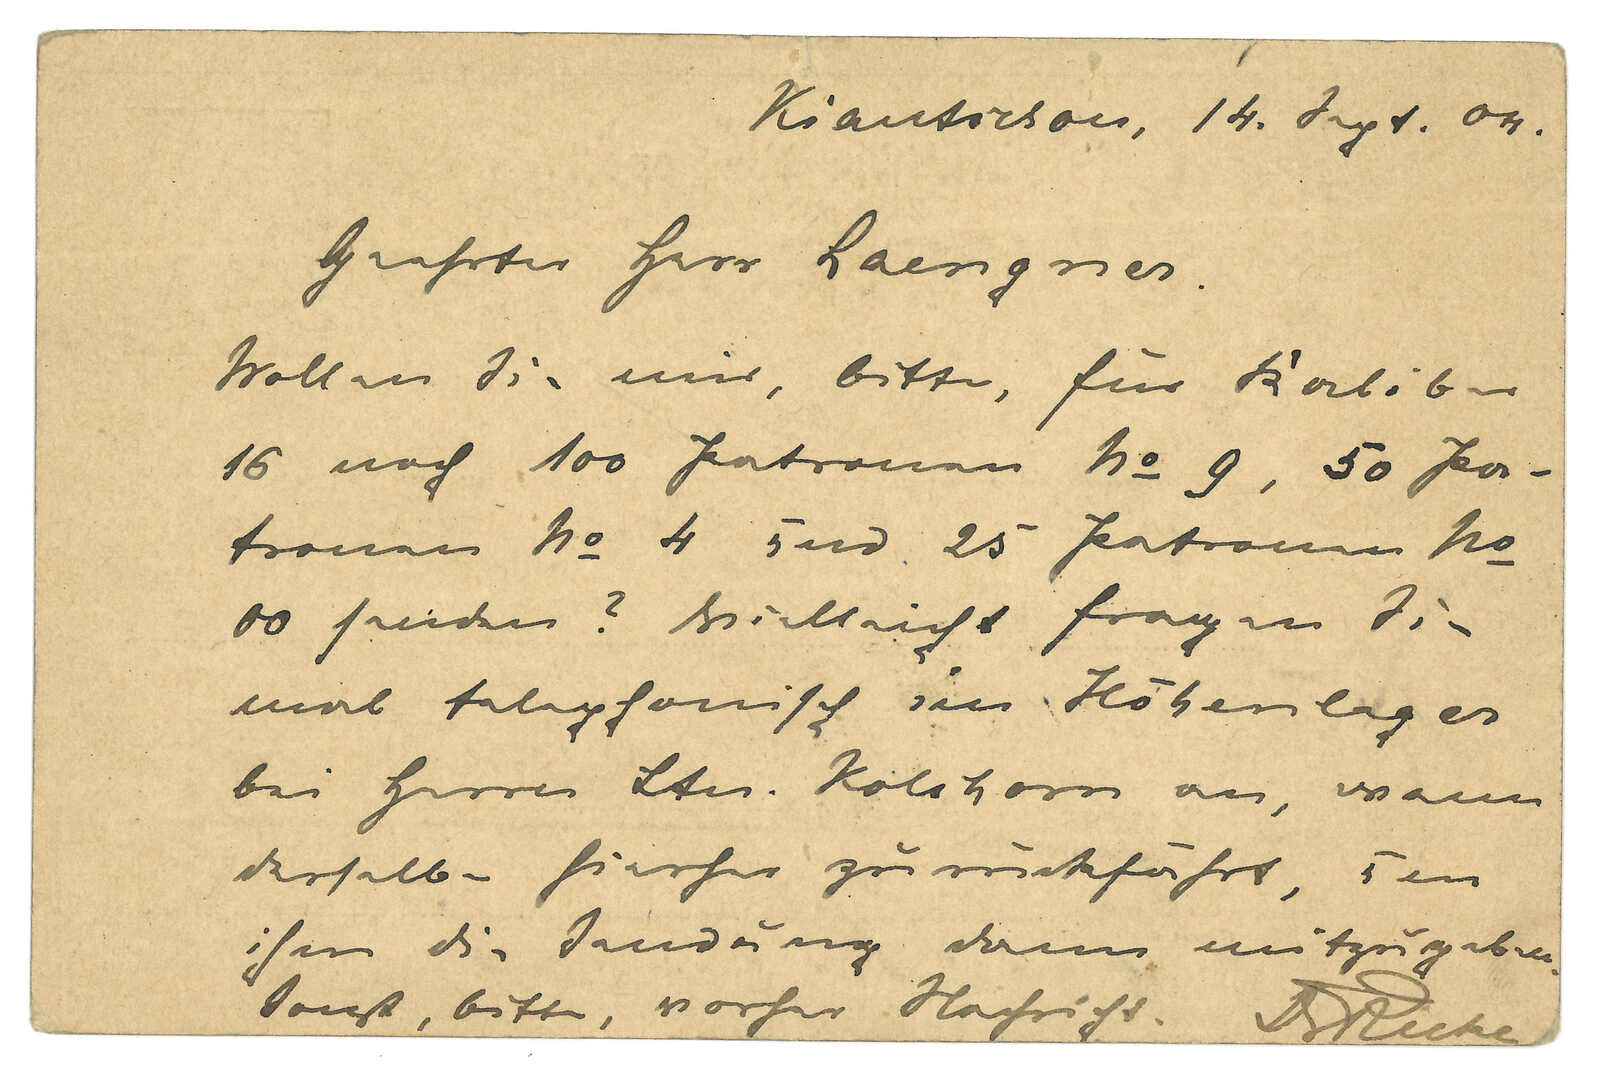 Kiautschou, 14. Sept. 04.
Geehrter Herr Laengner.
Wollen Sie mir, bitte, für Kaliber
16 noch 100 Patronen No 9, 50 Pa-
tronen No 4 und 25 Patronen No
00 senden? Vielleicht fragen Sie
mal telephonisch im Höhenlager
bei Herrn Ltn. Kolshorn an, wann
derselbe hierher zurückfährt, um
ihm die Sendung dann mitzugeben.
Sonst, bitte, vorher Nachricht. Dr